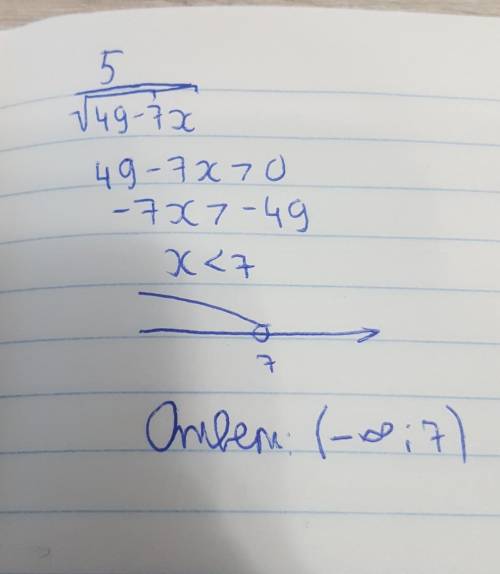 5
√49-7x
49-7x>0
-7x>-49
x<7
7
Ответ: (-∞;7)